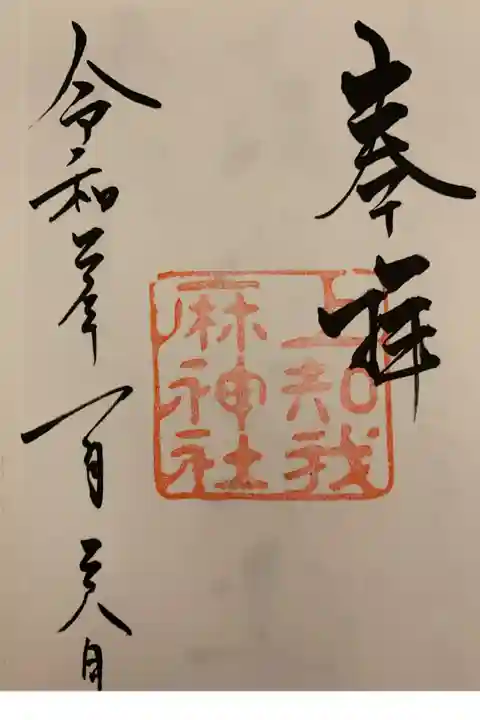 奉拝
上知我
麻神社
令和年一月日